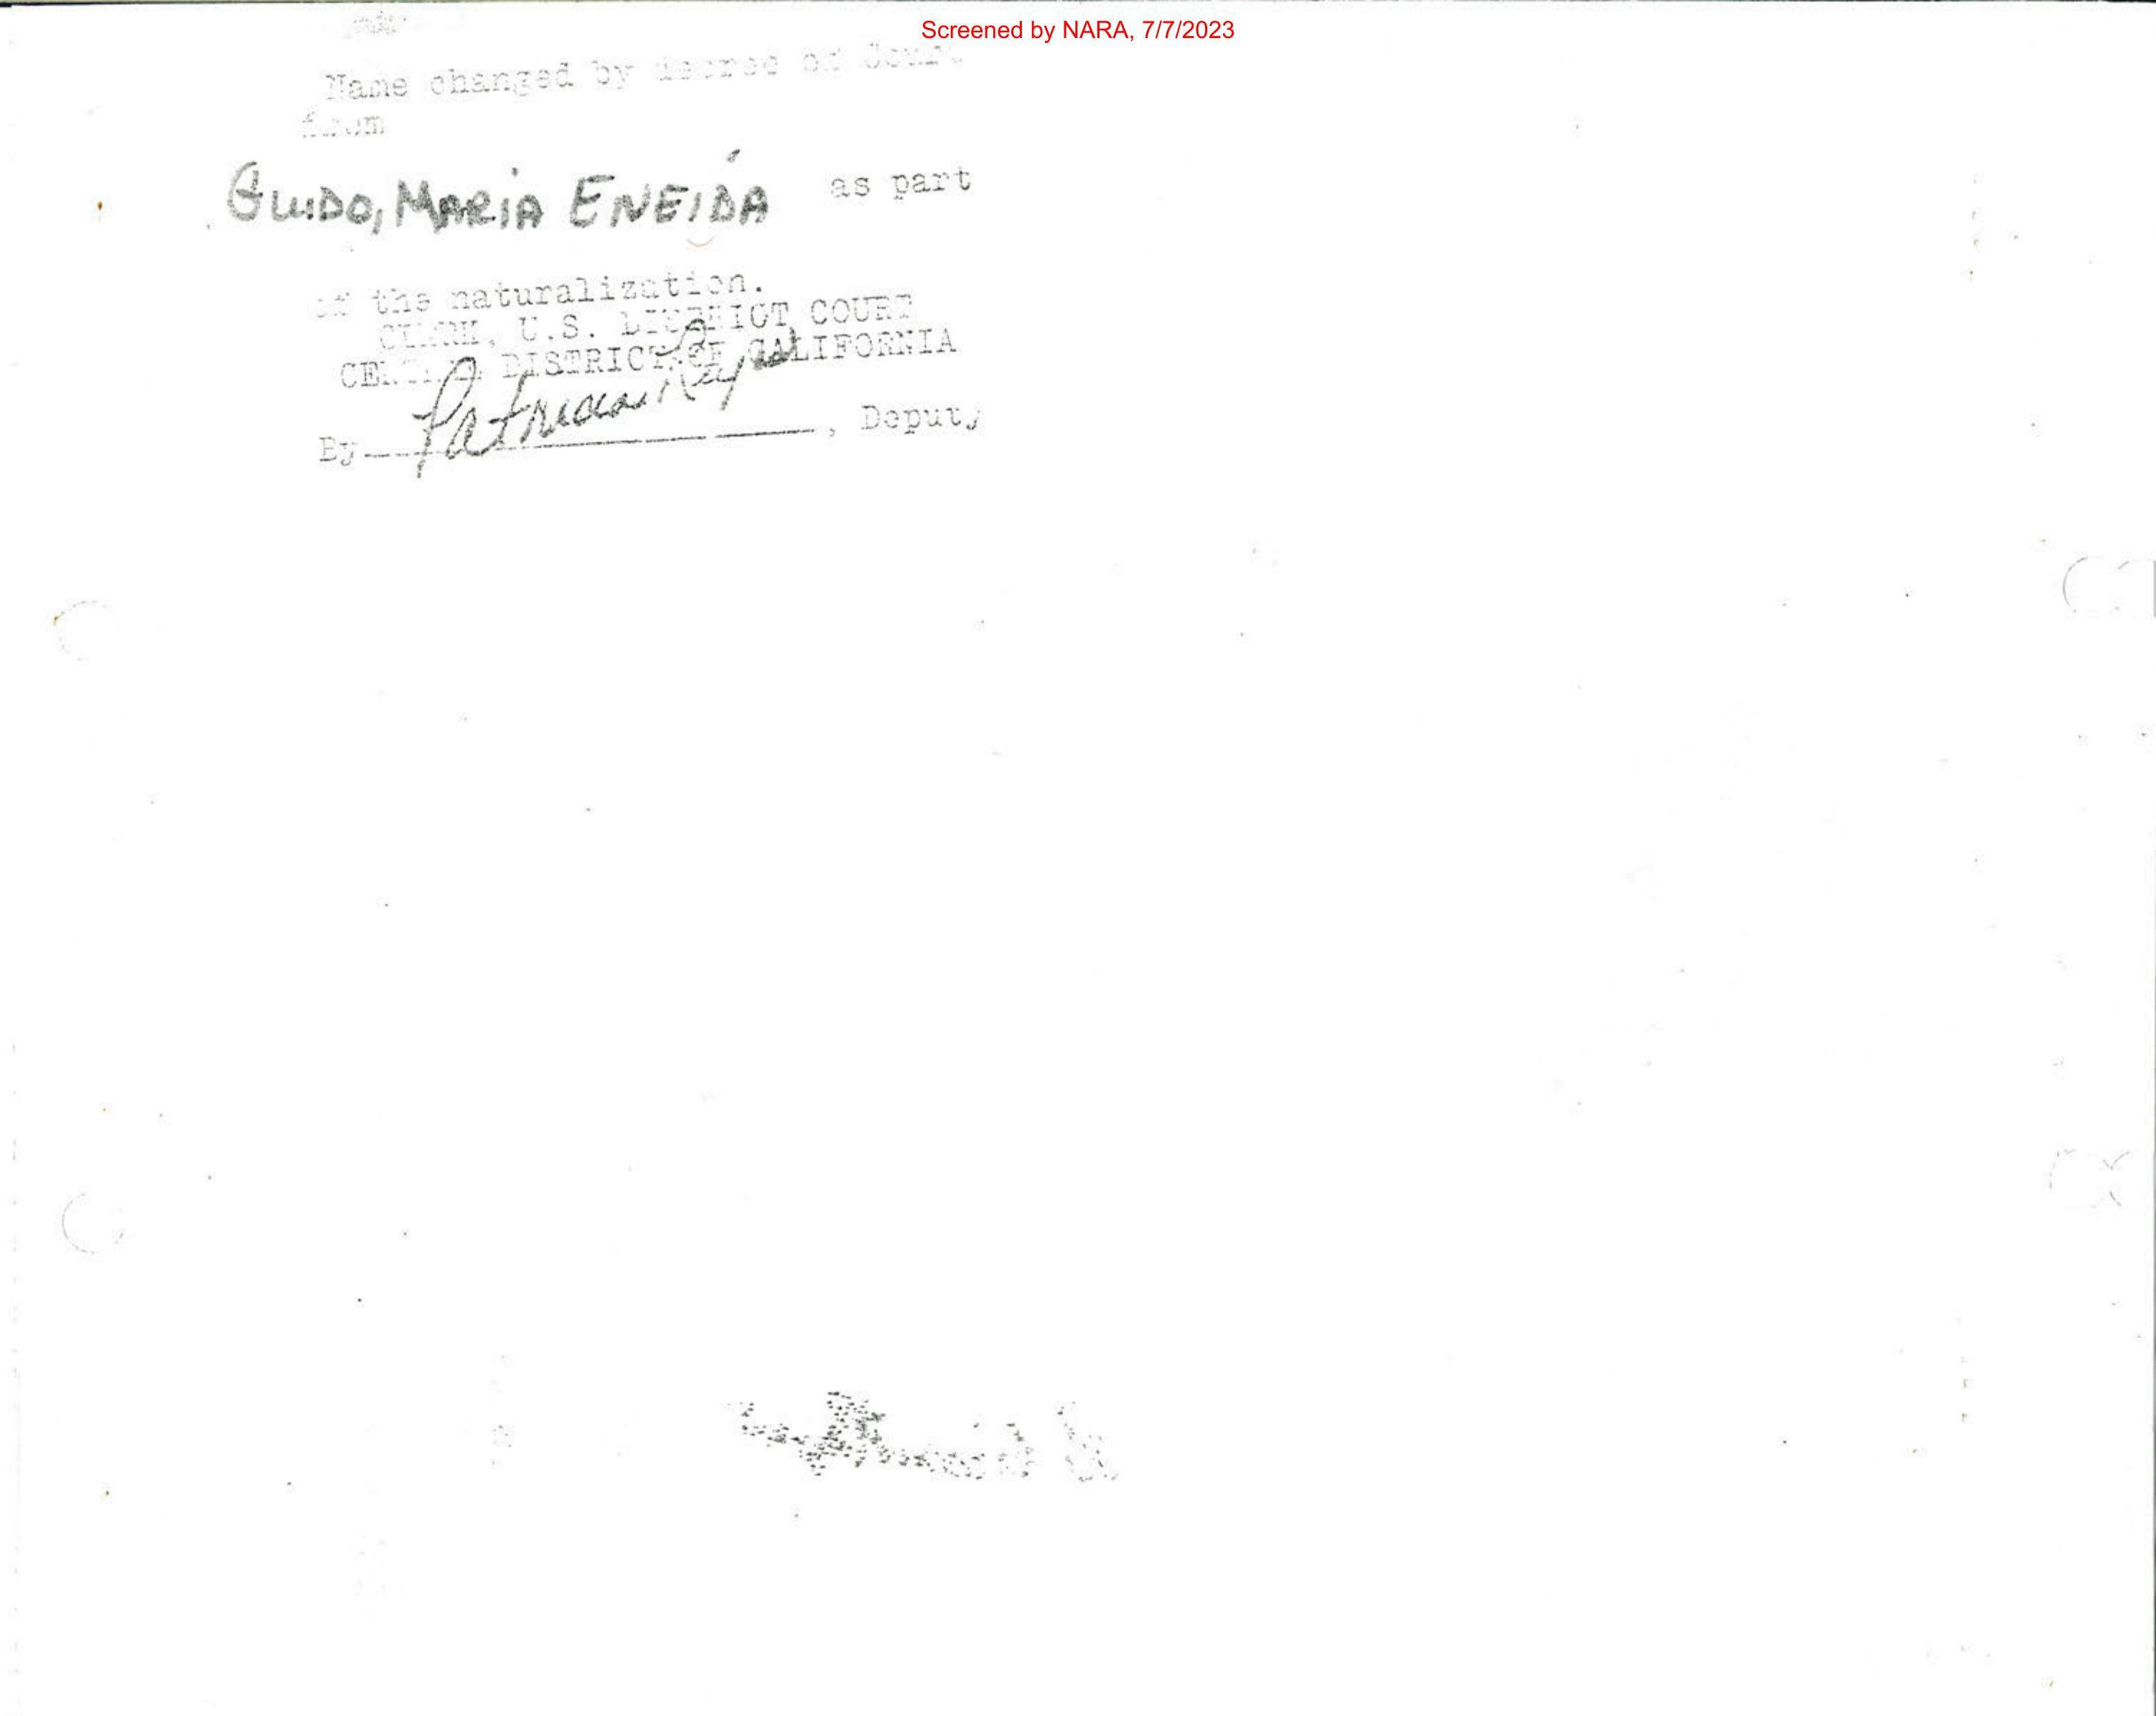 Screened by NARA, 7/7/2023
Name changed by decree of Court
from
GUIDO, MARIA ENEIDA as part
of the naturalization.
CLERK, U.S. DISTRICT COURT
CENTRAL DISTRICT OF CALIFORNIA
By Patricia , Deputy